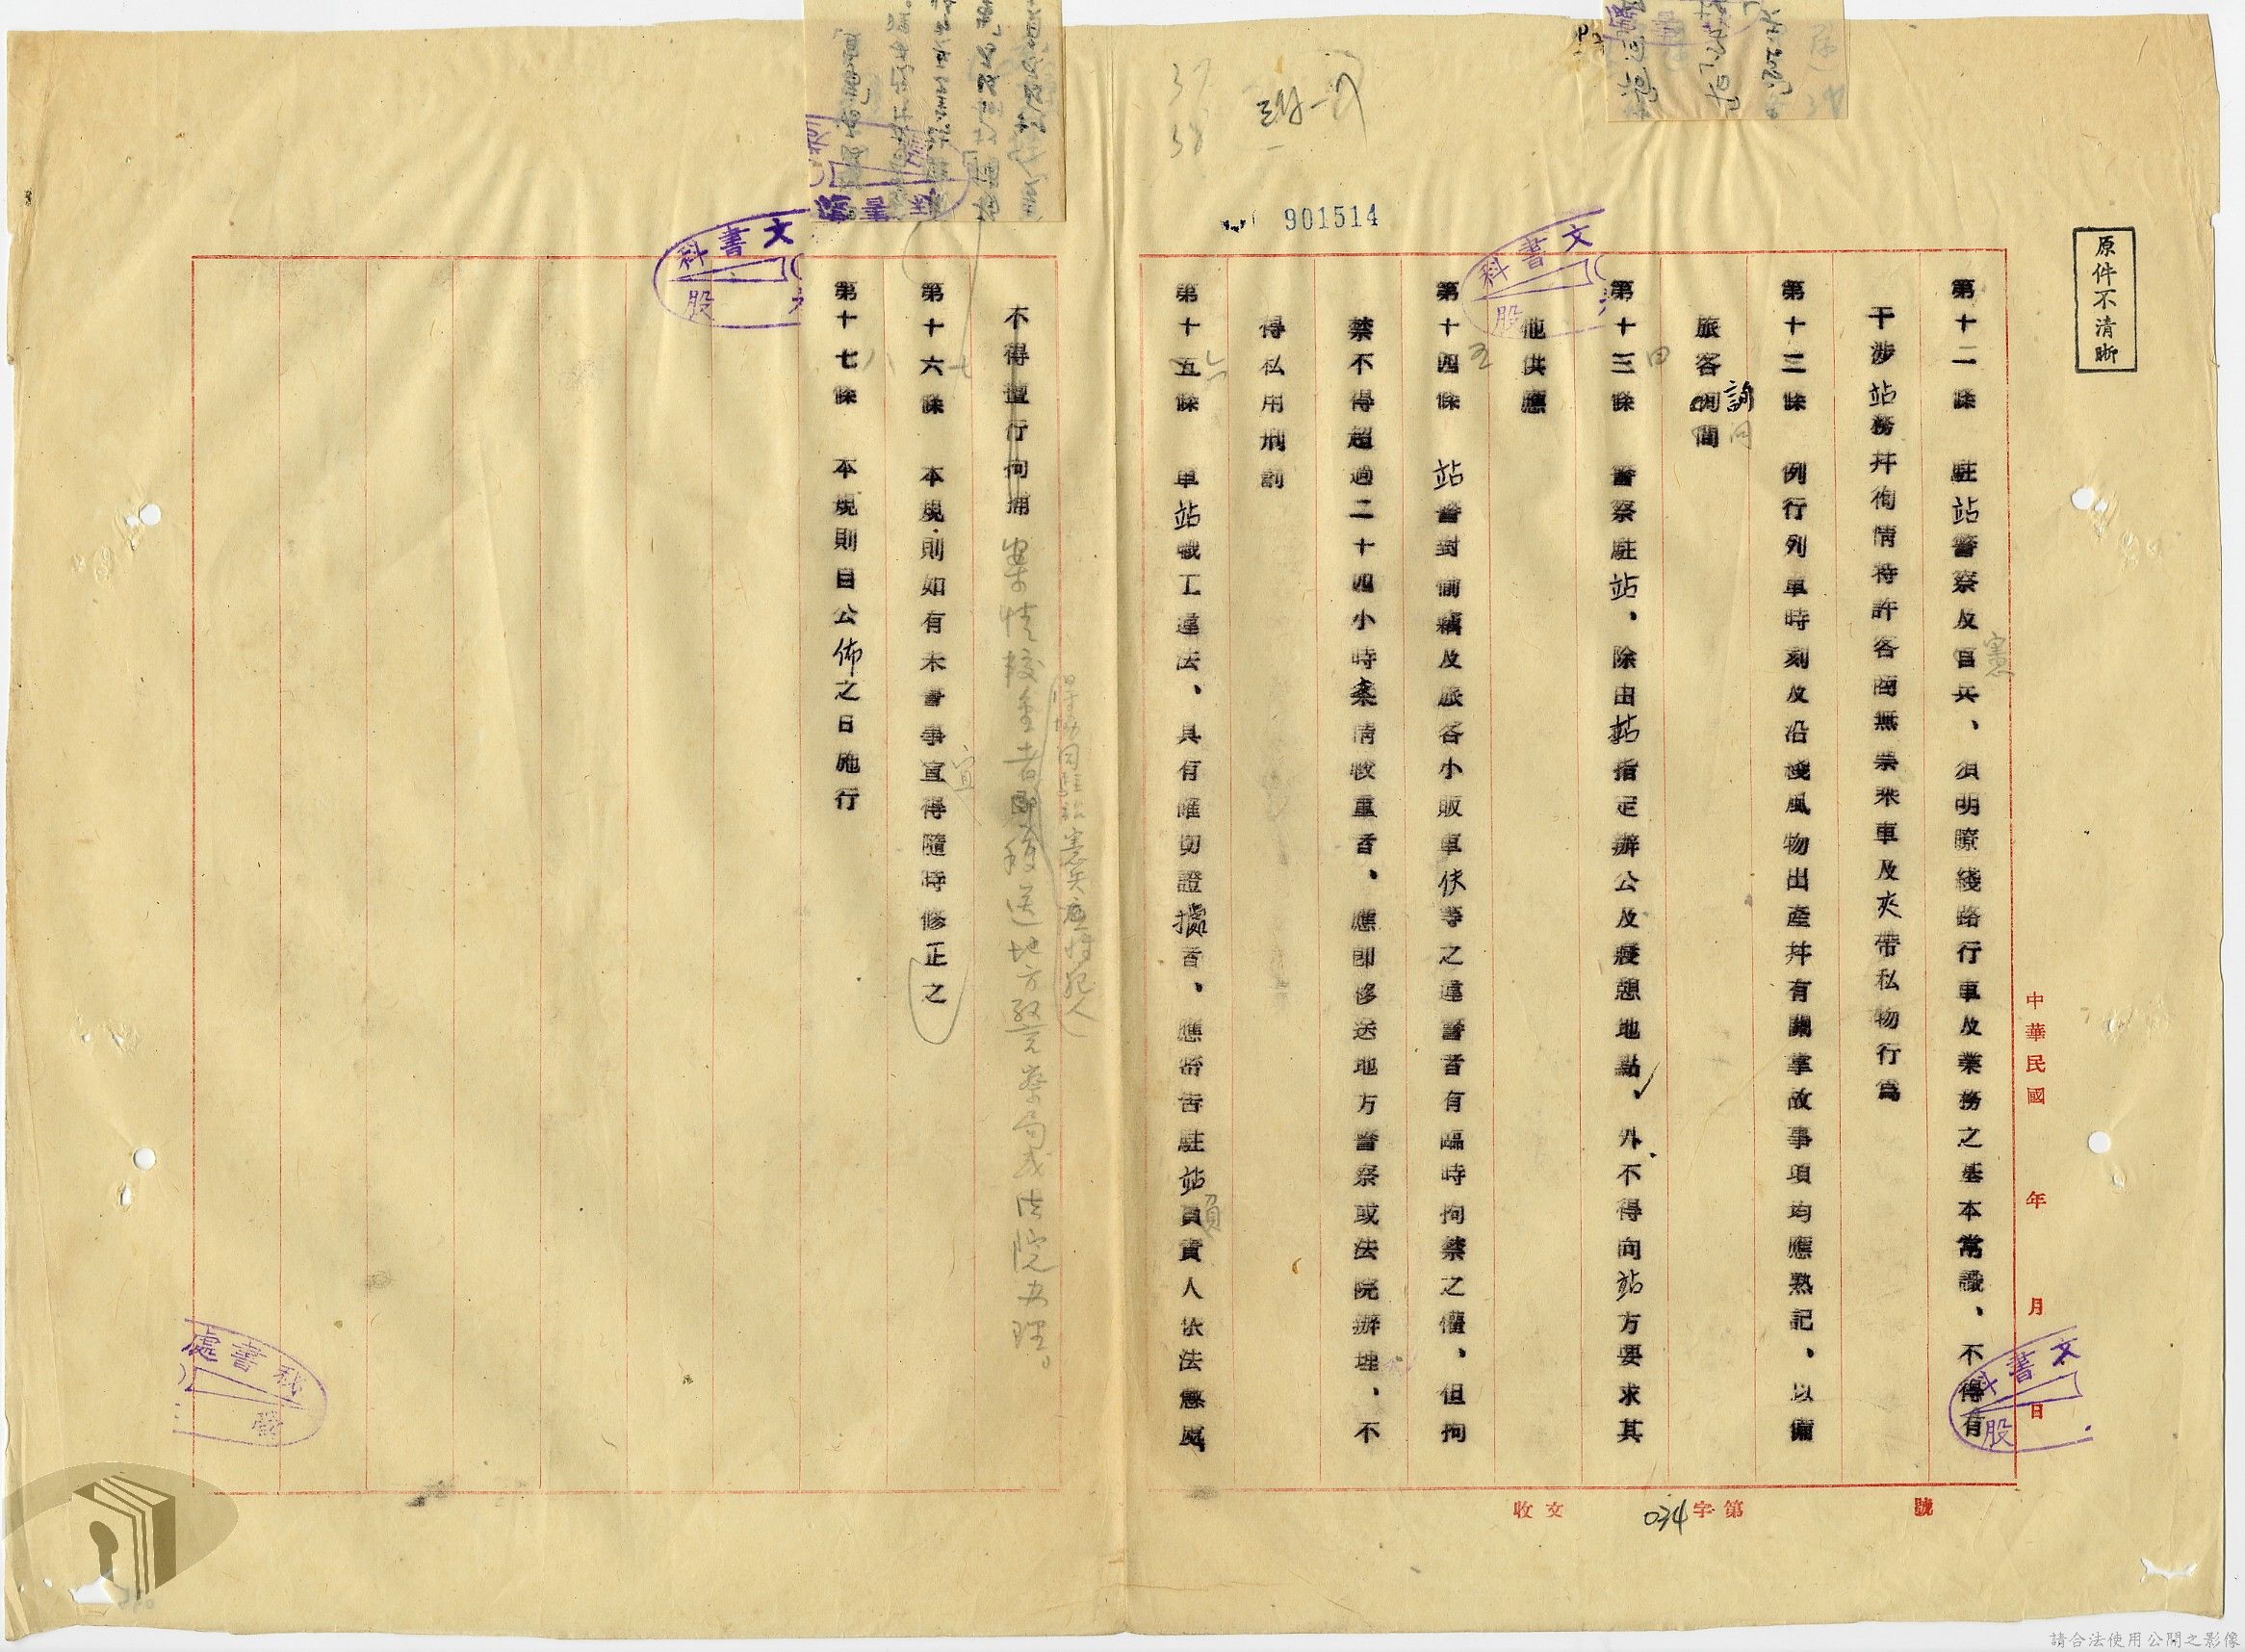 原件不清晰
901514
37
38
中華民國 年 月 日
第十二條 駐站警察及官兵、須明瞭綫路行車及業務之基本常識、不得有
憲
干涉站務并徇情特許客商無票乘車及夾帶私物行爲
第十三條 例行列車時刻及沿綫風物出產并有關掌故事項均應熟記、以備
旅客詢問
詢問
第十三條 警察駐站、除由站指定辦公及憩地點、外不得向站方要求其
四
他供應
第十四條 站警對偷竊及旅客小販車伕等之違警者有臨時拘禁之權、但拘
五
禁不得超過二十四小時案情較重者、應即移送地方警察或法院辦理、不
得私用刑罰
第十五條 車站職工違法、具有確切證據者、應密告駐站負責人依法懲處
六
負
得協同駐站憲兵應將犯人
不得擅行拘捕 案情較重者即移送地方警察局或法院办理。
第十六條 本規則如有未書事宜得隨時修正之
七
宜
第十七條 本規則自公佈之日施行
八
文書科
股
文書科
股
文書科
股
秘書處
收文 字第 號
034
請合法使用公開之影像